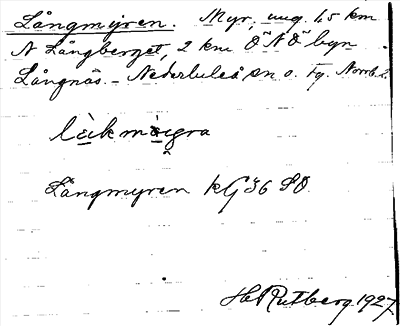 Långmyren. Myr, ung. 1,5 km
N Långberget, 2 km ÖNÖ byn
Långnäs. – Nederluleå sn o. tg. Norrb. l.
Långmyren kG36 SO
H. Rutberg 1927.